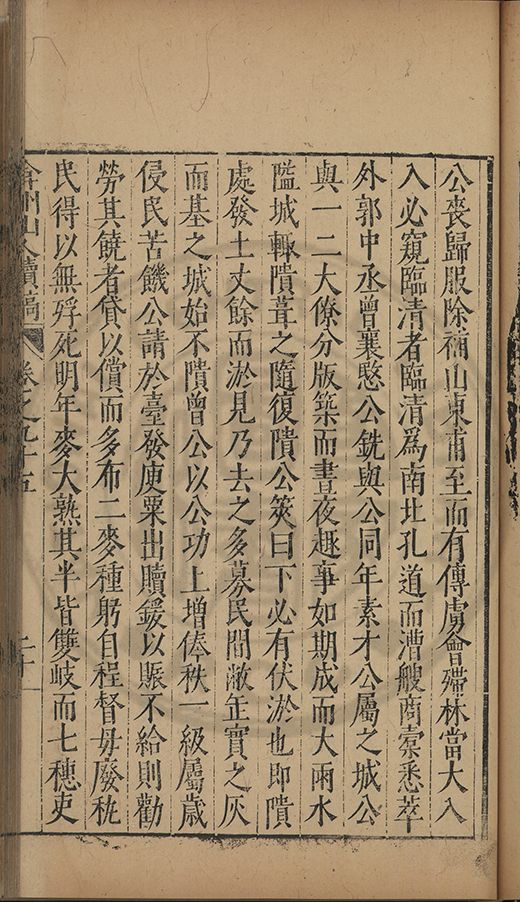 公喪歸服除補山東甫至而有傳虜會殢林當大入
入必窺臨清者臨清爲南北孔道而漕艘商橐悉萃
外郭中丞曾襄愍公銑與公同年素才公屬之城公
與一二大僚分版築而晝夜趣事如期成而大雨水
隘城輙隤葺之隨復隤公筴曰下必有伏淤也即隤
處發土丈餘而淤見乃去之多募民間敝缶實之灰
而基之城始不隤曾公以公功上增俸秩一級屬歲
侵民苦饑公請於臺發庾粟出贖鍰以賑不給則勸
勞其饒者貸以償而多布二麥種躬自程督毋廢秇
民得以無殍死明年麥大熟其半皆雙岐而七穗吏
弇州山人續稿 卷之九十五 二十